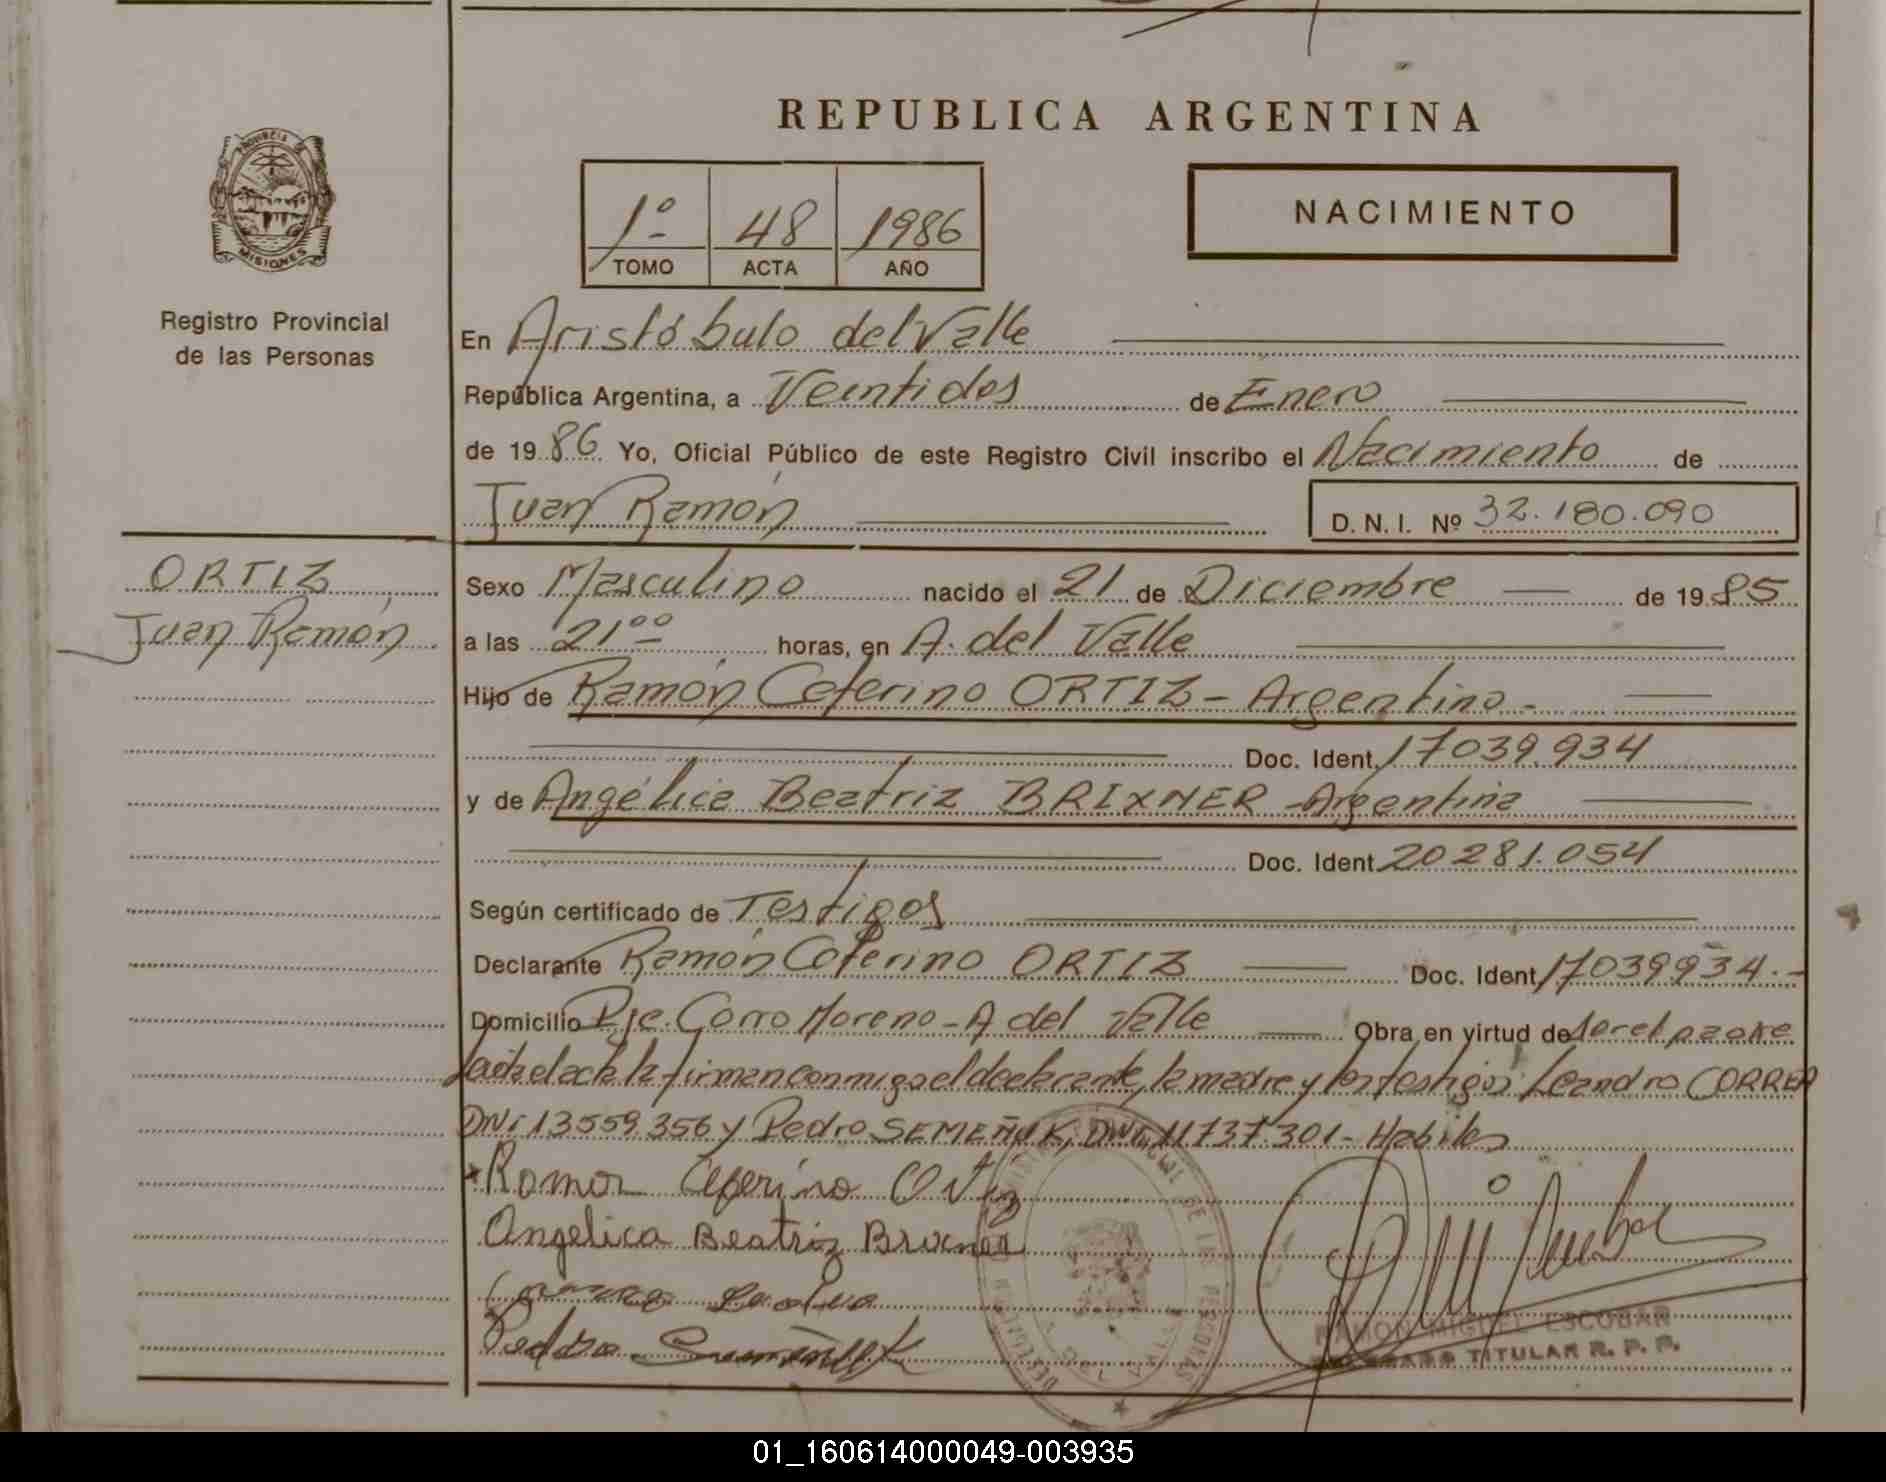 REPUBLICA ARGENTINA
PROVINCIA DE
MISIONES
Registro Provincial
de las Personas
1º 48 1986
TOMO ACTA AÑO
NACIMIENTO
En Aristóbulo del Valle
República Argentina, a Veintidos de Enero
de 1986 Yo, Oficial Público de este Registro Civil inscribo el Nacimiento de
Juan Ramón D. N. I. Nº 32.180.090
ORTIZ
Juan Ramón
Sexo Masculino nacido el 21 de Diciembre de 1985
a las 21ºº horas, en A. del Valle
Hijo de Ramón Ceferino ORTIZ - Argentino -
Doc. Ident. 17039.934
y de Angélica Beatriz BRIXNER - Argentina
Doc. Ident 20281.054
Según certificado de Testigos
Declarante Ramón Ceferino ORTIZ Doc. Ident 17039934.-
Domicilio Pje. Gorro Moreno - A del Valle Obra en virtud de ser el padre
Leida el acta la firman conmigo el declarante, la madre y los testigos: Leandro CORREA
DNI 13559.356 y Pedro SEMEÑUK, DNI. 11737.301 - Habiles
Ramon Ceferino Ortiz
Angelica Beatriz Brixner
Pedro Semeñuk
RAMON MIGUEL ESCOBAR
TITULAR R. P. P.
01_160614000049-003935